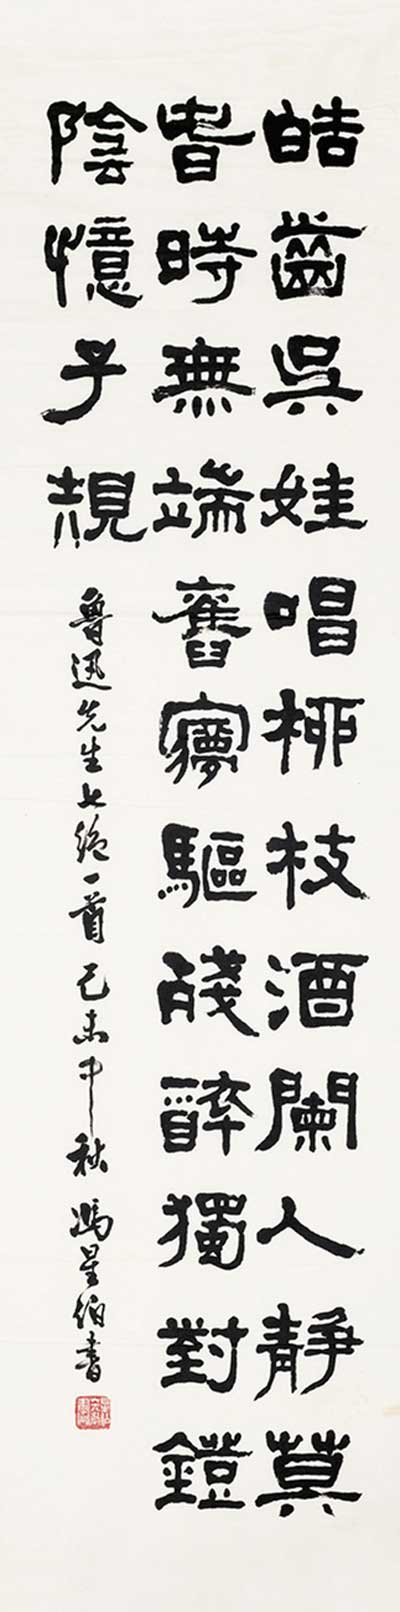 皓齒吳娃唱柳枝酒闌人靜莫
春時無端舊夢驅殘醉獨對鐙
陰憶子規
魯迅先生七絕一首己未中秋馮星伯書